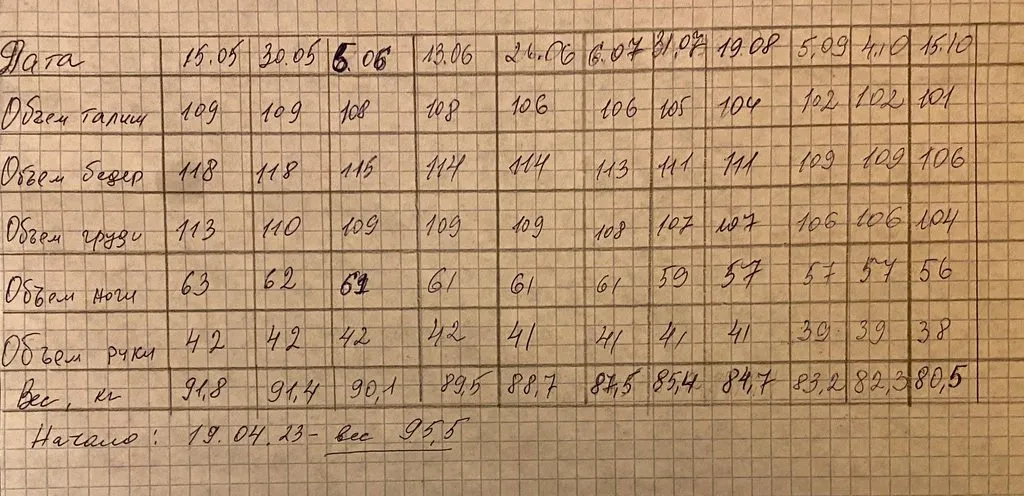 Дата 15.05 30.05 6.06 13.06 26.06 6.07 31.07 19.08 5.09 4.10 15.10
Объем талии 109 109 108 108 106 106 105 104 102 102 101
Объем бедер 118 118 115 114 114 113 111 111 109 109 106
Объем груди 113 110 109 109 109 108 107 107 106 106 104
Объем ноги 63 62 61 61 61 59 57 57 57 56
Объем руки 42 42 42 42 41 41 41 41 39 39 38
Вес, кг 91,8 91,4 90,1 89,5 88,7 87,5 85,4 84,7 83,2 82,3 80,5
Начало: 19.04.23 - вес 95,5